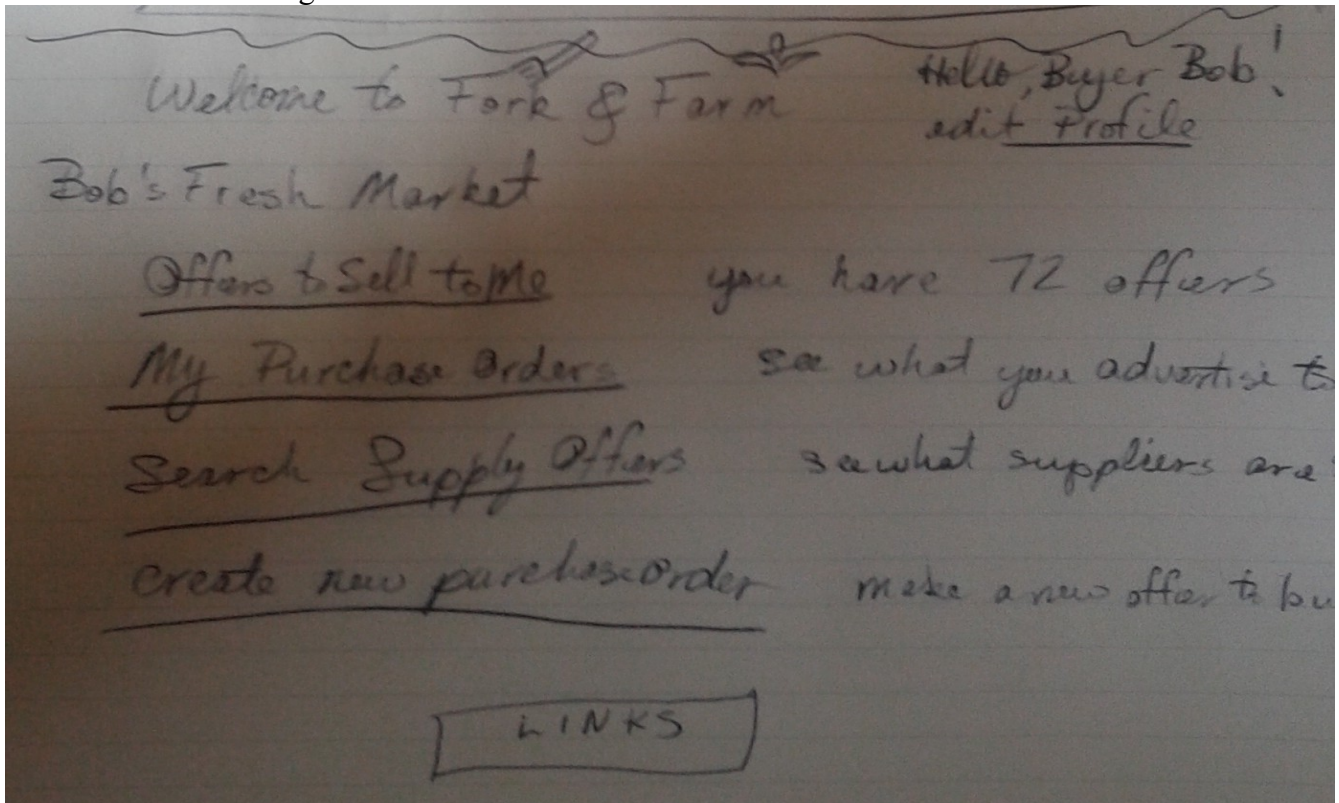 Welcome to Fork & Farm
Hello, Buyer Bob!
edit Profile
Bob's Fresh Market
Offers to Sell to Me you have 72 offers
My Purchase Orders see what you advertise to
Search Supply Offers see what suppliers are
create new purchase order make a new offer to bu
LINKS